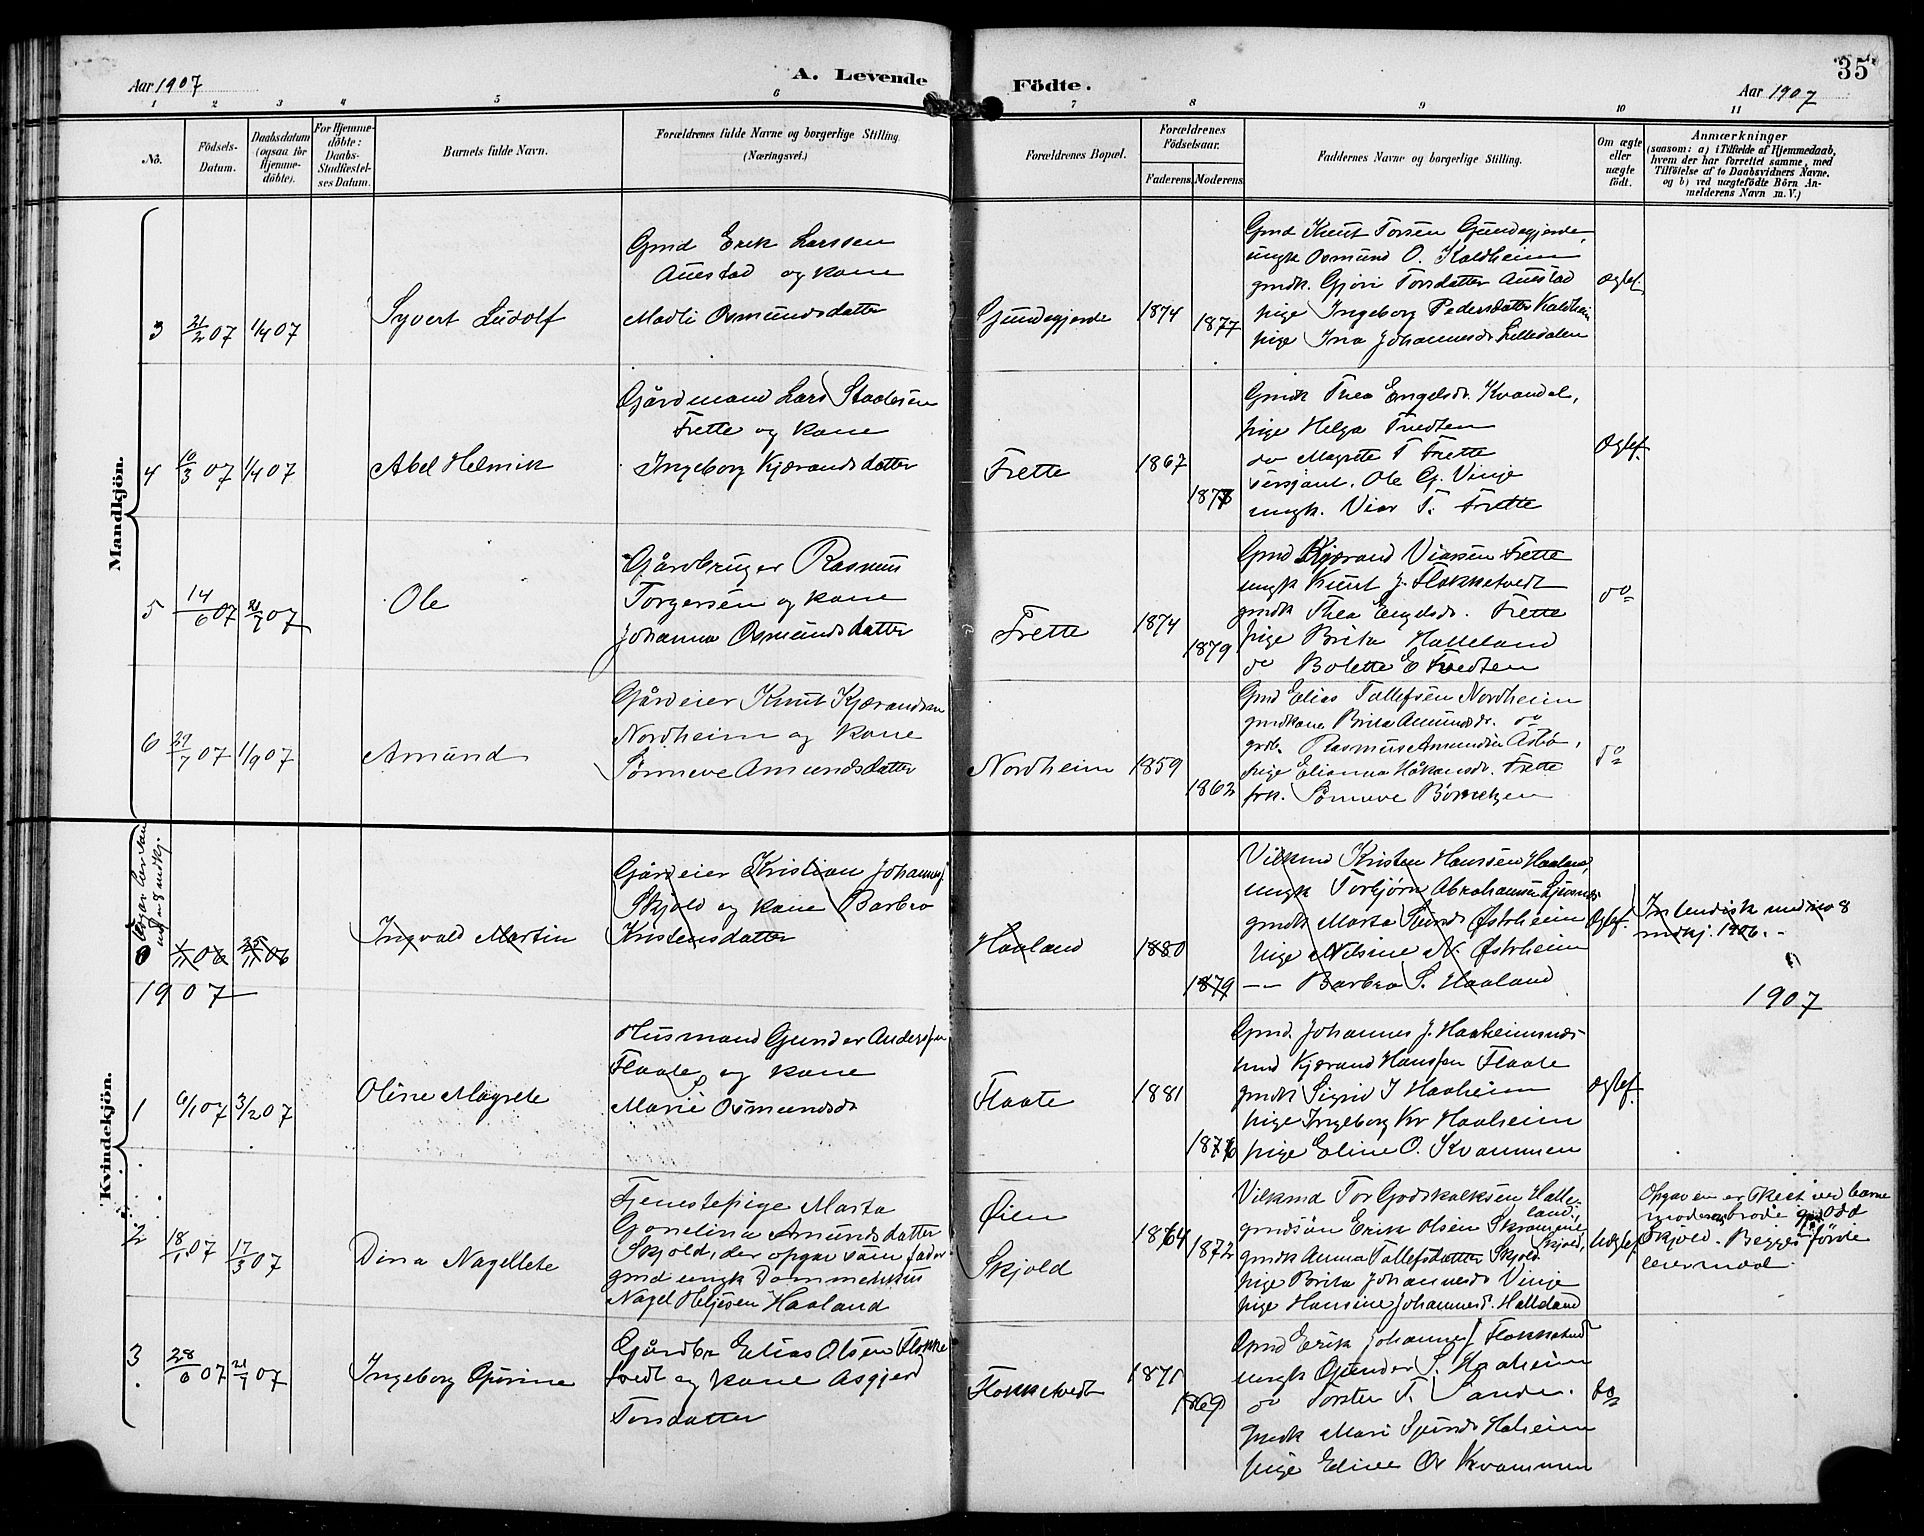 35
Aar 1907
A. Levende Födte.
Aar 1907
1 2 3 4 5 6 7 8 9 10 11
No.
Födsels-
Datum.
Daabsdatum
(ogsaa for
Hjemme-
döbte).
For Hjemme-
döbte:
Daabs-
Stadfæstel-
ses Datum.
Barnets fulde Navn.
Forældrenes fulde Navne og borgerlige Stilling.
(Næringsvei.)
Forældrenes Bopæl.
Forældrenes
Födselsaar.
Faderens. Moderens.
Faddernes Navne og borgerlige Stilling.
Om ægte
eller
uægte
födt.
Anmærkninger
(saasom: a) i Tilfælde af Hjemmedaab,
hvem der har forrettet samme, med
Tilföielse af to Daabsvidners Navne.
og b) ved uægtefödte Börn An-
melderens Navn m. V.)
Mandkjön.
3 21/2 07 1/4 07
Syvert Ludolf
Gmd Erik Larssen
Auestad og kone
Madli Osmundsdatter
Gundegjerde
1874
1877
Gmd Knut Torsen Gundegjerde,
ungk Osmund O. Kaldheim
gmdk. Gjøri Torsdatter Auestad
pige Ingeborg Pedersdatter Kaldheim
pige Ina Johannesd. Lilledalen
Ægtef.
4 10/3 07 1/4 07
Abel Helmik
Gårdmand Lars Staalesen
Frette og kone
Ingeborg Kjærandsdatter
Frette
1867
1878
Gmdk Thea Engelsdr. Kvandal,
pige Helga Tvedten
do Magrete T Frette
sersjant. Ole G. Vinje
ungk. Viar T. Frette
Ægtef.
5 14/6 07 21/7 07
Ole
Gårdbruger Rasmus
Torgersen og kone
Johanna Osmundsdatter
Frette
1874
1879
Gmd Kjærand Viarsen Frette
ungk Knut J. Flokketvedt
gmdk Thea Engelsdr. Frette
pige Brita Halleland
do Bolette E Tvedten
do
6 27/7 07 1/9 07
Amund
Gårdeier Knut Kjærandsen
Nordheim og kone
Sønneve Amundsdatter
Nordheim
1859
1862
Gmd Elias Tollefsen Nordheim
gmdkone Brita Amundsdr. do
grdb. Rasmus Amundsen Asbø,
pige Elianna Håkonsdr. Frette
frk. Sønneve Børretzen
do
Kvindekjön.
1/11 06 25/11 06
Ingvald Martin
Gårdeier Kristian Johannes.
Skjold og kone Barbro
Kristensdatter
Haaland
1880
1879
Vilkmd Kristen Hanssen Haaland,
ungk Torbjørn Abrahamsen
gmdk Marta Østrheim
pige Nilsine N. Østrheim
-- Barbra S. Haaland
Ægtef.
med no 8
mdkj. 1906.
1907
1907
1 6/1 07 3/2 07
Oline Magrete
Husmand Gunder Anderssen
Flaate og kone
Marie Osmundsdr
Flaate
1881
1876
Gmd. Johannes J. Haaheimsnes
hmd Kjærand Hanssen Flaate
gmdk Sigrid J Haaheim
pige Ingeborg Kr Haaheim
pige Eline O. Kvammen
Ægtef.
2 18/1 07 17/3 07
Dina Nagellete
Tjenestepige Marta
Gonelina Amundsdatter
Skjold, der opgav som fader
gmd ungk Dommenikus
Nagel Heljesen Haaland
Øien
Skjold
1864
1872
Vilkmd Tor Godskalksen Halle-
land,
gmdsøn Erik Olsen Skramme
Skjold,
gmdk Anna Tollefsdatter Skjold
pige Brita Johannesdr Vinje
pige Hansine Johannesd. Halleland
Uægtef
Opgaven er skeet ved barne
moderens brode gmd Odd
Skjold. Begges förste
leiermaal.
3 28/6 07 21/7 07
Ingeborg Gjørine
Gårdbr Elias Olsen Flokke
tvedt og kone Asgjerd
Torsdatter
Flokketvedt
1871
1869
Gmd Erik Johannes. Flokketvedt
ungk Gunder S. Haaheim
do Torsten T. Sande.
gmdk Mari Haheim
pige Eline Or Kvammen
do